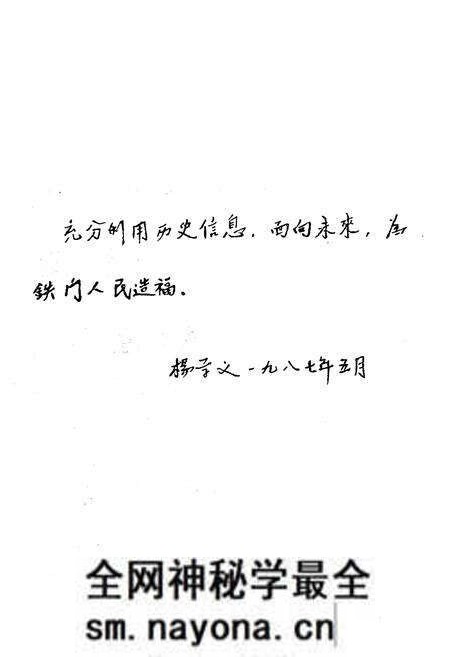 充分利用历史信息，面向未来，为
鉄门人民造福。
楊学文一九八七年五月
全网神秘学最全
sm.nayona.cn